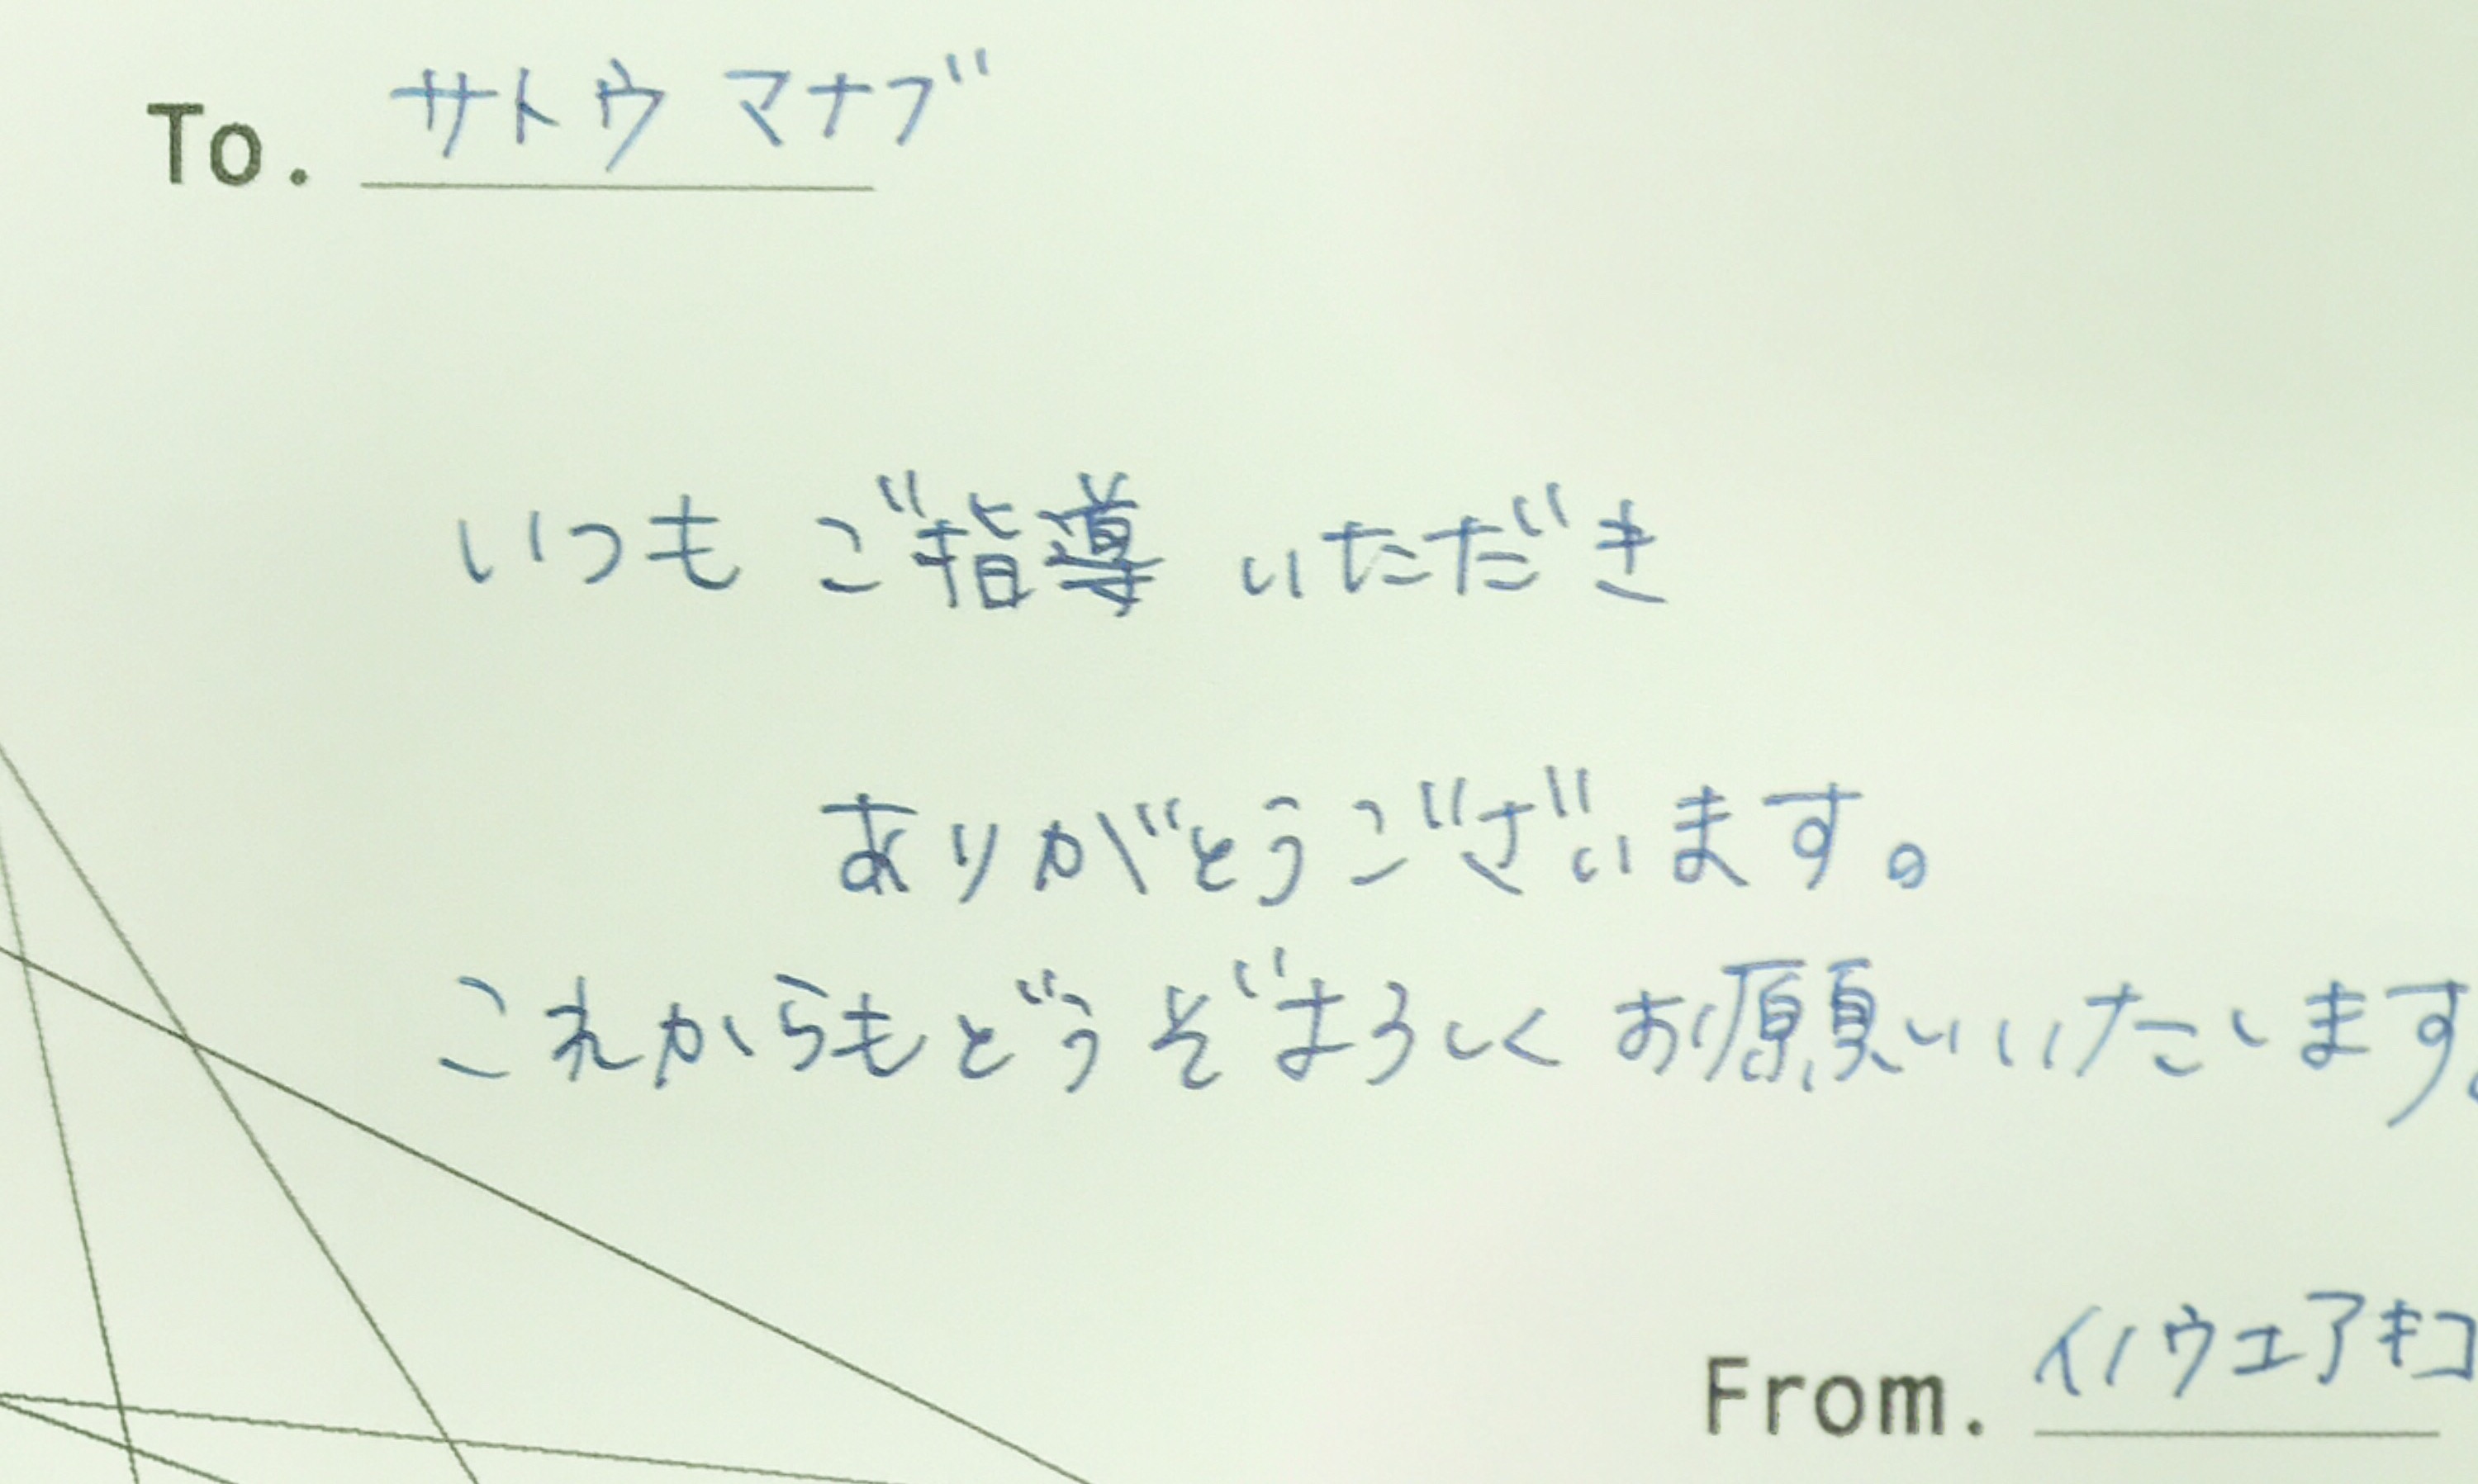 To. サトウ マナブ
いつも ご指導 いただき
ありがとうございます。
これからもどうぞよろしく お願いいたします。
From. イノウエアキコ